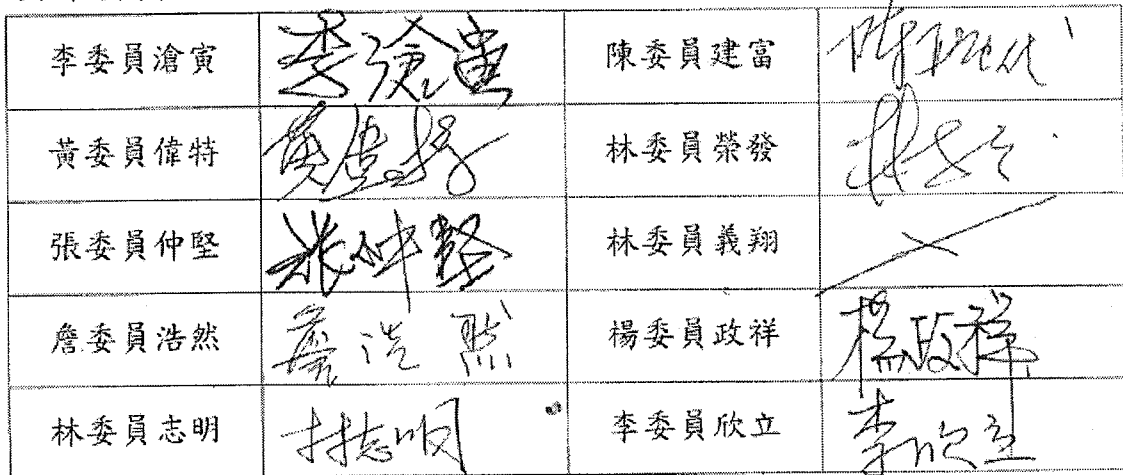 李委員滄寅 李滄寅 陳委員建富
黃委員偉特 黃偉特 林委員榮發
張委員仲堅 張仲堅 林委員義翔
詹委員浩然 詹浩然 楊委員政祥 楊政祥
林委員志明 林志明 李委員欣立 李欣立